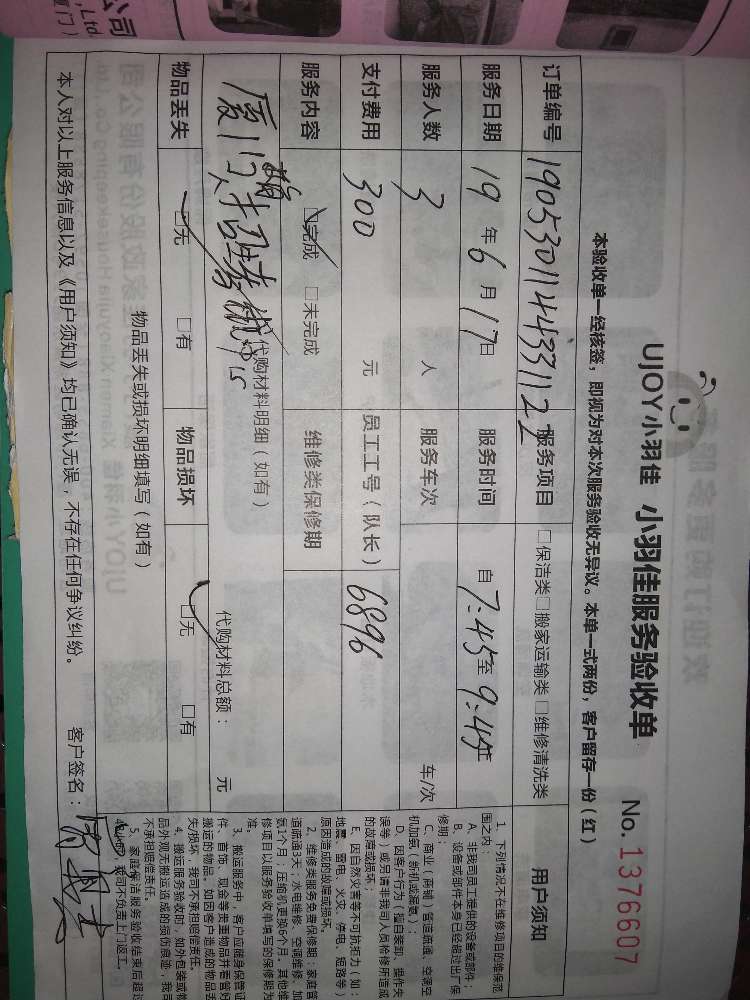 UJOY小羽佳 小羽佳服务验收单
No. 1376607
本验收单一经核签，即视为对本次服务验收无异议。本单一式两份，客户留存一份（红）
订单编号 190530114433112 服务项目 □保洁类□搬家运输类 □维修清洗类
服务日期 19 年 6 月 17 日 服务时间 自 7:45 至 9:45 止
服务人数 3 人 服务车次 车/次
支付费用 300 元 员工工号（队长） 6896
服务内容 □完成 □未完成 维修类保修期
代购材料明细（如有）
代购材料总额： 元
物品丢失 □无 □有 物品损坏 □无 □有
物品丢失或损坏明细填写（如有）
本人对以上服务信息以及《用户须知》均已确认无误，不存在任何争议纠纷。 客户签名：
用户须知
1、下列情况不在维修项目的维保范
围之内：
A、非我司员工提供的设备或部件；
B、设备或部件本身已经超过出厂保
修期；
C、商业（商铺）管道疏通、空调空
机加氨（新机或漏氨）；
D、因客户行为（擅自装卸、操作失
误等）或另请非我司人员检修所造成
的故障或损坏；
E、因自然灾害等不可抗拒力（如：
地震、雷电、火灾、停电、短路等）
原因造成的故障或损坏。
2、维修类服务免费保修期：家庭管
道疏通3天；水电维修、空调维修、加
氨1个月；压缩机更换6个月。其他维
修项目以服务验收单填写的保修期为
准。
3、搬运服务中，客户应随身保管证
件、首饰、现金等贵重物品并看管好
搬运的物品。如因客户造成的物品丢
失/损坏，我司不承担赔偿责任。
4、搬运服务验收时，如外包装或物
品外观无搬运造成的损伤痕迹，我司
不承担赔偿责任。
5、家庭保洁服务验收结束后超过
我司不负责上门返工。
公司
., Ltd.
厦门）